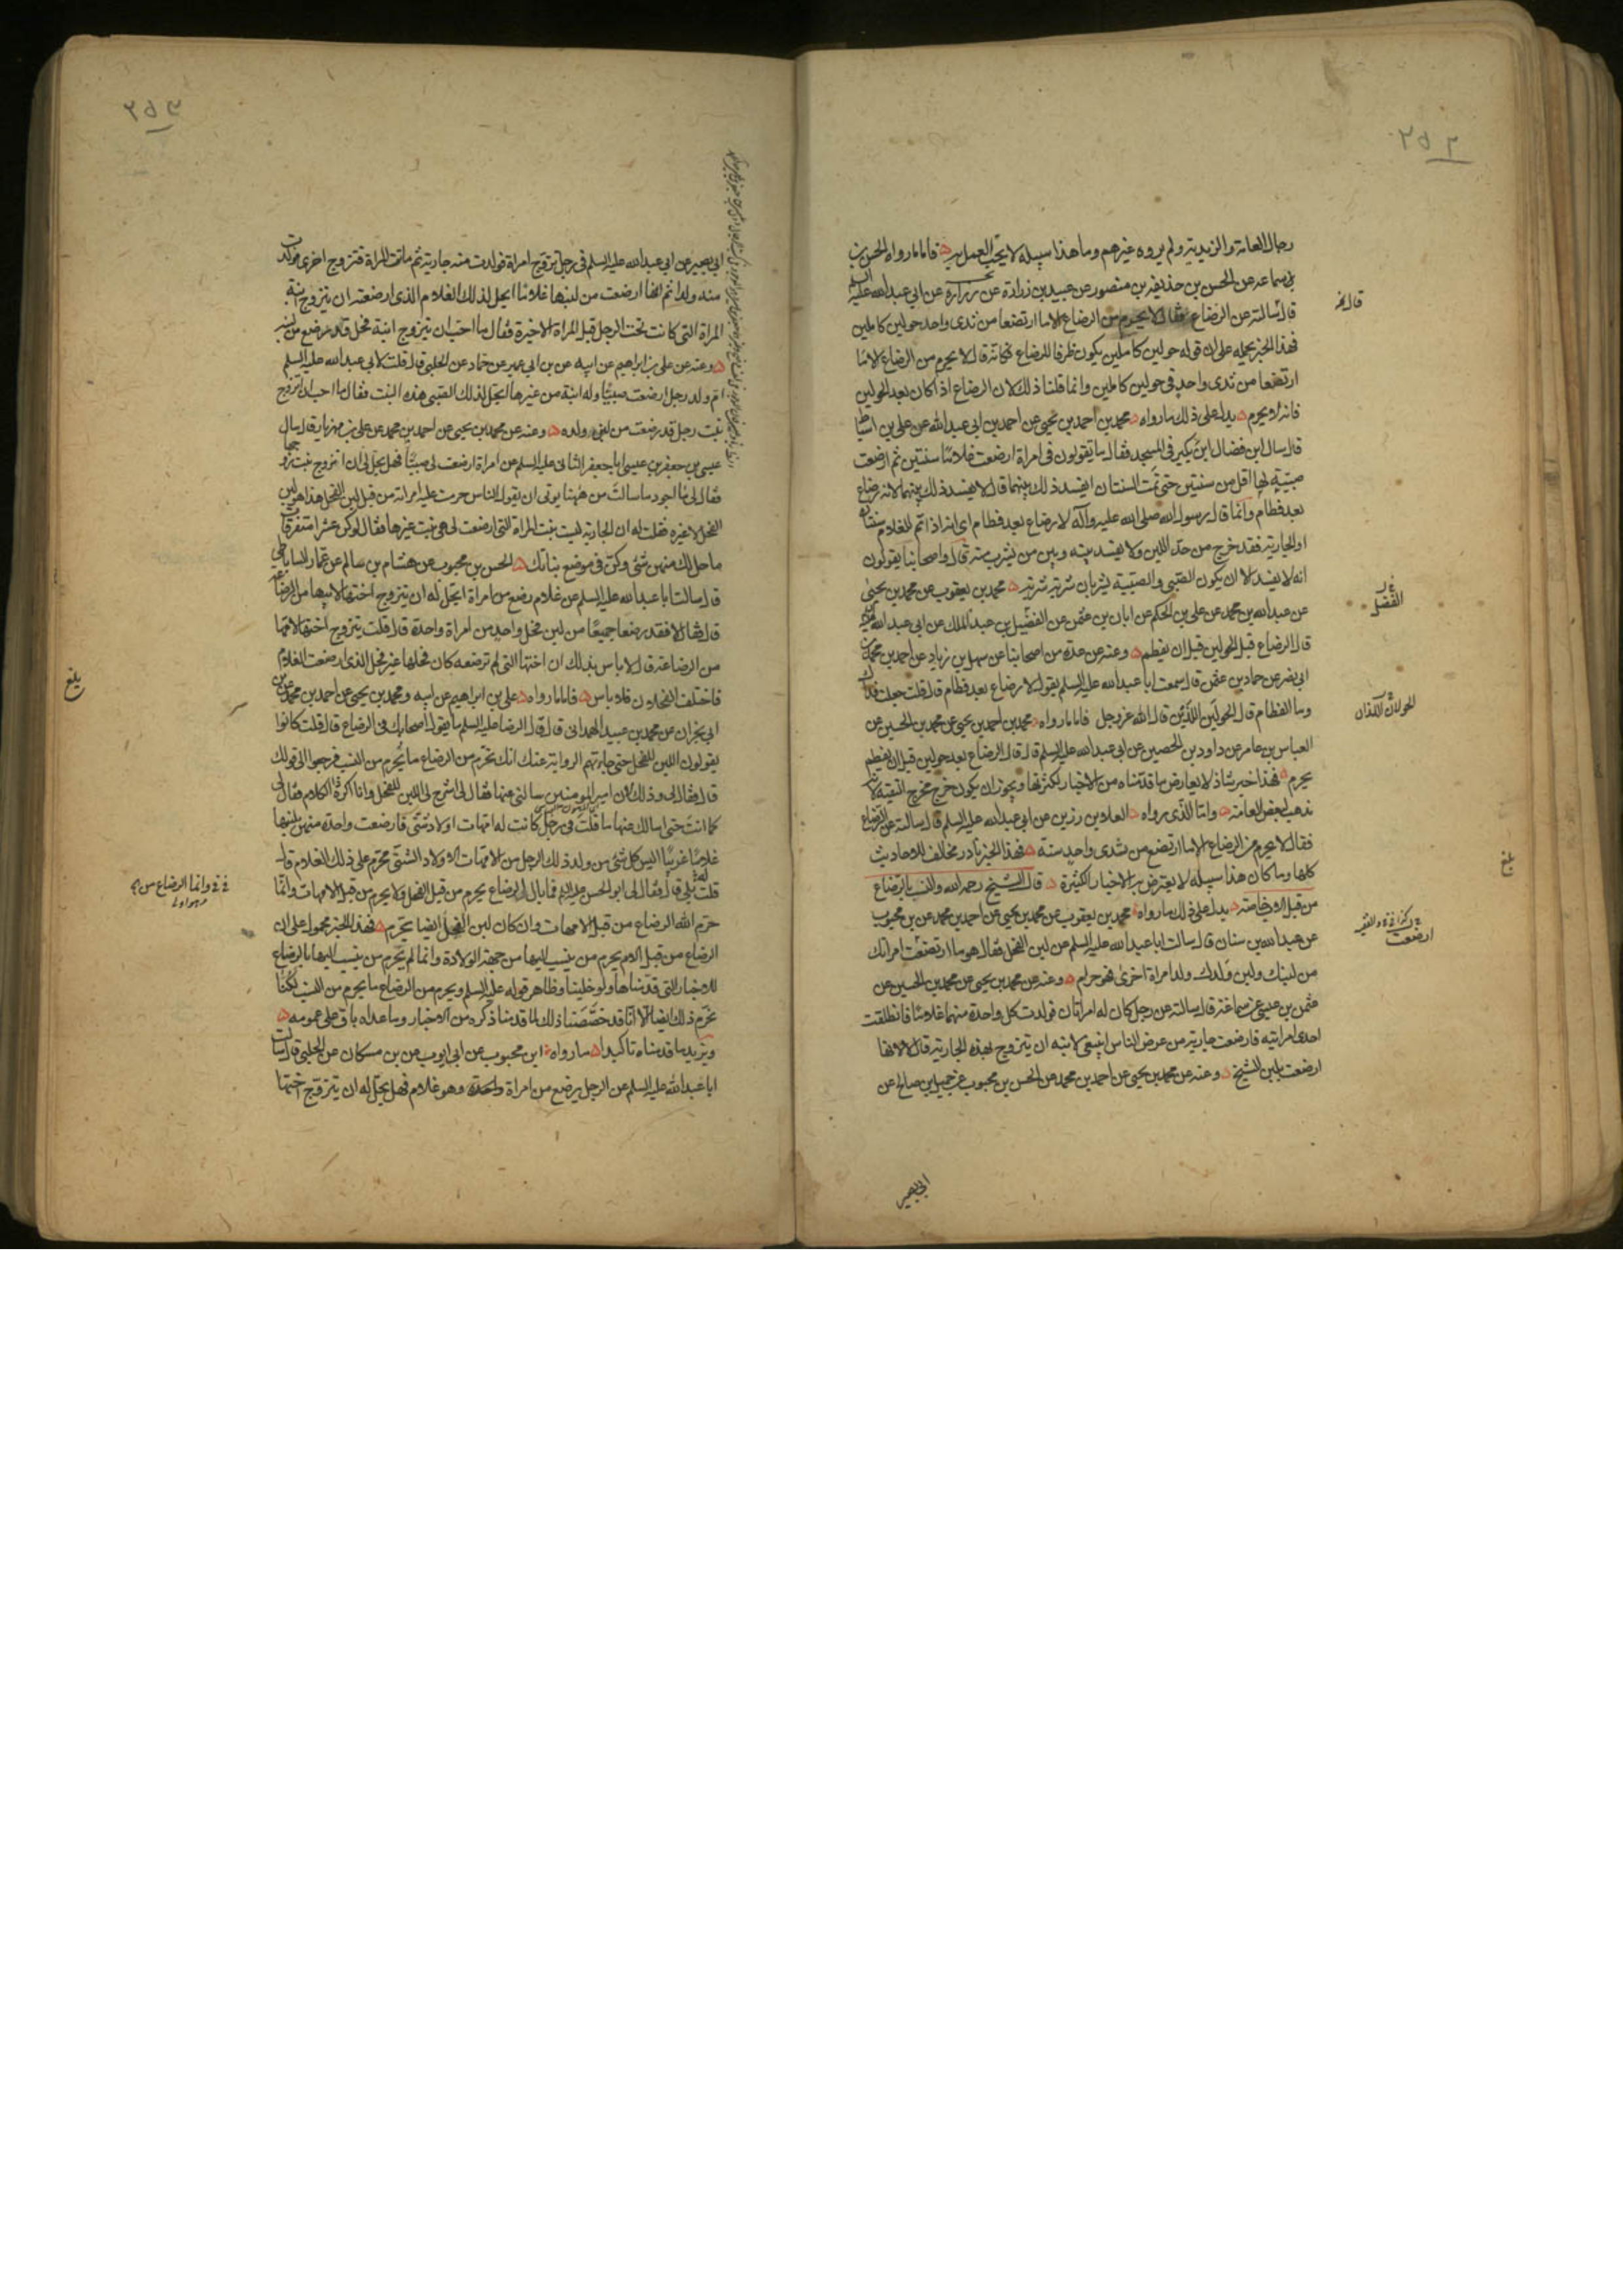 ٢٥٢
رجال العامة والزيدية ولم يروه غيرهم وما هذا سبيله لا يجب العمل به فاما ما رواه الحسن بن
بن سماعه عن الحسن بن حذيفة بن منصور عن عبيد بن زرارة عن زرارة عن ابي عبد الله عليه السلم
قال سالته عن الرضاع فقال لا يحرم من الرضاع الا ما ارتضعا من ثدى واحد حولين كاملين
فهذا الخبر نحمله على ان قوله حولين كاملين يكون ظرفا للرضاع فكانه قال لا يحرم من الرضاع الا ما
ارتضعا من ثدى واحد في حولين كاملين وانما قلنا ذلك لان الرضاع اذا كان بعد الحولين
فانه لا يحرم يدل على ذلك ما رواه محمد بن احمد بن يحيى عن احمد بن ابي عبد الله عن علي بن اسباط
قال سال ابن فضال ابن بكير في المسجد فقال ما يقولون في امراة ارضعت غلاما سنتين ثم ارضعت
صبية لها اقل من سنتين حتى تمت السنتان ايفسد ذلك بينهما قال لا يفسد ذلك بينهما لانه رضاع
بعد فطام وانما قال رسول الله صلى الله عليه وآله لا رضاع بعد فطام اى انه اذا تم للغلام سنتان
او الجارية فقد خرج من حد اللبن ولا يفسد بينه وبين من يشرب منه قال واصحابنا يقولون
انه لا يفسد الا ان يكون الصبي والصبية يشربان شربة شربة محمد بن يعقوب عن محمد بن يحيى
عن عبد الله بن محمد عن علي بن الحكم عن ابان بن عثمن عن الفضيل بن عبد الملك عن ابي عبد الله عليه السلم
قال الرضاع قبل الحولين قبل ان يفطم وعنه عن عدة من اصحابنا عن سهل بن زياد عن احمد بن محمد بن
ابي نصر عن حماد بن عثمن قال سمعت ابا عبد الله عليه السلم يقول لا رضاع بعد فطام قال قلت جعلت فداك
وما الفطام قال الحولين اللذين قال الله عز وجل فاما ما رواه محمد بن احمد بن يحيى عن محمد بن الحسين عن
العباس بن عامر عن داود بن الحصين عن ابي عبد الله عليه السلم قال قال الرضاع بعد حولين قبل ان يفطم
يحرم فهذا خبر شاذ لا يعارض ما قدمناه من الاخبار لكثرتها ويجوز ان يكون خرج مخرج التقية لانه
مذهب لبعض العامة واما الذي رواه العلاء بن رزين عن ابي عبد الله عليه السلم قال سالته عن الرضاع
فقال لا يحرم من الرضاع الا ما ارتضع من ثدى واحد سنة فهذا الخبر نادر مخالف للاحاديث
كلها وما كان هذا سبيله لا يعترض به الاخبار الكثيرة قال الشيخ رحمه الله والنسب بالرضاع
من قبل الاب خاصة يدل على ذلك ما رواه محمد بن يعقوب عن محمد بن يحيى عن احمد بن محمد عن بن محبوب
عن عبد الله بن سنان قال سالت ابا عبد الله عليه السلم عن لبن الفحل فقال هو ما ارتضعت امراتك
من لبنك ولبن ولدك ولد امراة اخرى فهو حرام وعنه عن محمد بن يحيى عن محمد بن الحسين عن
عثمن بن عيسى عن سماعة قال سالته عن رجل كان له امراتان فولدت كل واحدة منهما غلاما فانطلقت
احدى امراتيه فارضعت جارية من عرض الناس اينبغى لابنه ان يتزوج بهذه الجارية قال لا لانها
ارضعت بلبن الشيخ وعنه عن محمد بن يحيى عن احمد بن محمد عن الحسن بن محبوب عن جميل بن صالح عن
الفضل
الحولان اللذان
بلغ
ارضعت
ابي بصير
٢٥٣
ابي بصير عن ابي عبد الله عليه السلم في رجل تزوج امراة فولدت منه جارية ثم ماتت المراة فتزوج اخرى فولدت
منه ولدا ثم انها ارضعت من لبنها غلاما ايحل لذلك الغلام الذى ارضعته ان يتزوج ابنة
المراة التي كانت تحت الرجل قبل المراة الاخيرة فقال ما احب ان يتزوج ابنة فحل قد رضع من لبنه
وعنه عن علي بن ابراهيم عن ابيه عن بن ابي عمير عن حماد عن الحلبي قال قلت لابي عبد الله عليه السلم
ام ولد رجل ارضعت صبيا وله ابنة من غيرها ايحل لذلك الصبي هذه البنت فقال ما احب ان تزوج
بنت رجل قد رضعت من لبن ولده وعنه عن محمد بن يحيى عن احمد بن محمد عن علي بن مهزيار قال سال
عيسى بن جعفر بن عيسى ابا جعفر الثاني عليه السلم عن امراة ارضعت لي صبيا فهل يحل لي ان اتزوج بنت زوجها
فقال لي ما اجود ما سالت من ههنا يوتى ان يقول الناس حرمت عليه امراته من قبل لبن الفحل هذا هو لبن
الفحل لا غيره فقلت له ان الجارية ليست بنت المراة التي ارضعت لي هي بنت غيرها فقال لو كن عشرا متفرقات
ما حل لك منهن شئ وكن في موضع بناتك الحسن بن محبوب عن هشام بن سالم عن عمار الساباطي
قال سالت ابا عبد الله عليه السلم عن غلام رضع من امراة ايحل له ان يتزوج اختها لابيها من الرضاعة
قال فقال لا فقد رضعا جميعا من لبن فحل واحد من امراة واحدة قال قلت يتزوج اختها لامها
من الرضاعة قال لا باس بذلك ان اختها التي لم ترضعه كان فحلها غير فحل الذى ارضعت الغلام
فاختلف الفحلان فلا باس فاما ما رواه علي بن ابراهيم عن ابيه ومحمد بن يحيى عن احمد بن محمد عن بن
ابي نجران عن محمد بن عبيد الهمداني قال قال الرضا عليه السلم ما يقول اصحابك في الرضاع قال قلت كانوا
يقولون اللبن للفحل حتى جاءتهم الرواية عنك انك تحرم من الرضاع ما يحرم من النسب فرجعوا الى قولك
قال فقال لي وذلك لان امير المومنين سالني عنها فقال لي اشرح لي اللبن للفحل وانا اكره الكلام فقال لي
كما انت حتى اسالك عنها ما قلت في رجل كانت له امهات اولاد شتى فارضعت واحدة منهن بلبنها
غلاما غريبا اليس كل شئ من ولد ذلك الرجل من الامهات الاولاد الشتى محرم على ذلك الغلام قال
قلت بلى قال فقال لي ابو الحسن عليه السلم فما بال الرضاع يحرم من قبل الفحل ولا يحرم من قبل الامهات وانما
حرم الله الرضاع من قبل الامهات وان كان لبن الفحل ايضا يحرم فهذا الخبر محمول على ان
الرضاع من قبل الام يحرم من ينسب اليها من جهة الولادة وانما لم يحرم من ينسب اليها بالرضاع
للاخبار التي قدمناها ولو خلينا وظاهر قوله عليه السلم ويحرم من الرضاع ما يحرم من النسب لكنا
نحرم ذلك ايضا الا انا قد خصصنا ذلك لما قدمنا ذكره من الاخبار وما عداه باق على عمومه
ويزيد ما قدمناه تاكيدا ما رواه ابن محبوب عن ابي ايوب عن بن مسكان عن الحلبي قال سالت
ابا عبد الله عليه السلم عن الرجل يرضع من امراة واحدة وهو غلام فهل يحل له ان يتزوج اختها
بلغ
وانما الرضاع من